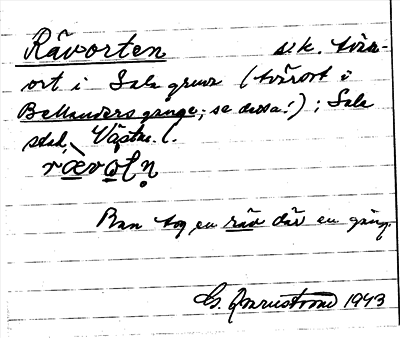 Rävorten sek. tvär-
ort i Sala gruva (tvärort i
Bellanders gånge; se dessa!); Sala
stad, Västm. l.
rævoḷṇ
Man tog en räv där en gång.
G. 1943